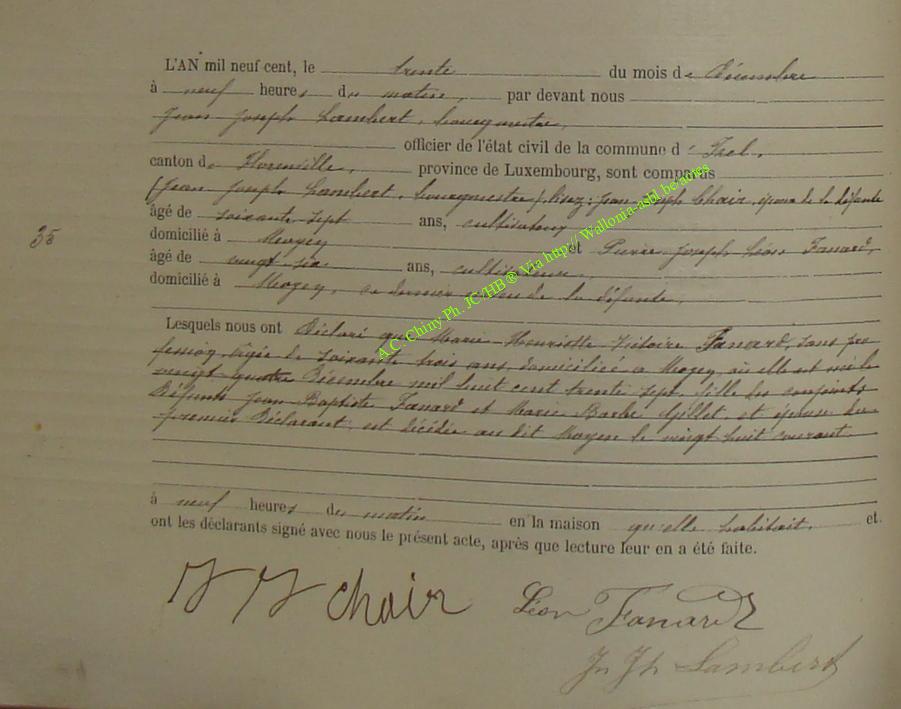 L'AN mil neuf cent, le trente du mois de Décembre
à neuf heures du matin, par devant nous
Jean Joseph Lambert, bourgmestre,
officier de l'état civil de la commune d'Izel,
canton de Florenville, province de Luxembourg, sont comparus
(Jean Joseph Lambert, bourgmestre) lisez: Jean Joseph Chair, époux de la défunte
âgé de soixante sept ans, cultivateur
domicilié à Moyen et Pierre Joseph Léon Fanard,
35
âgé de vingt six ans, cultivateur,
domicilié à Moyen, ce dernier de la défunte,
Lesquels nous ont Déclaré que Marie Henriette Victoire Fanard, sans pro
fession, âgée de soixante trois ans, domiciliée à Moyen, où elle est née le
vingt quatre Décembre mil huit cent trente sept, fille des conjoints
Défunts Jean Baptiste Fanard et Marie Barbe Gillet, et épouse du
premier Déclarant, est décédée au dit Moyen le vingt huit courant
à neuf heures du matin en la maison qu'elle habitait, et
ont les déclarants signé avec nous le présent acte, après que lecture leur en a été faite.
J J Chair Léon Fanard
Jn Jh Lambert
A.C. Chiny Ph. JC/HB ® Via http:// Wallonia-asbl.be/actes